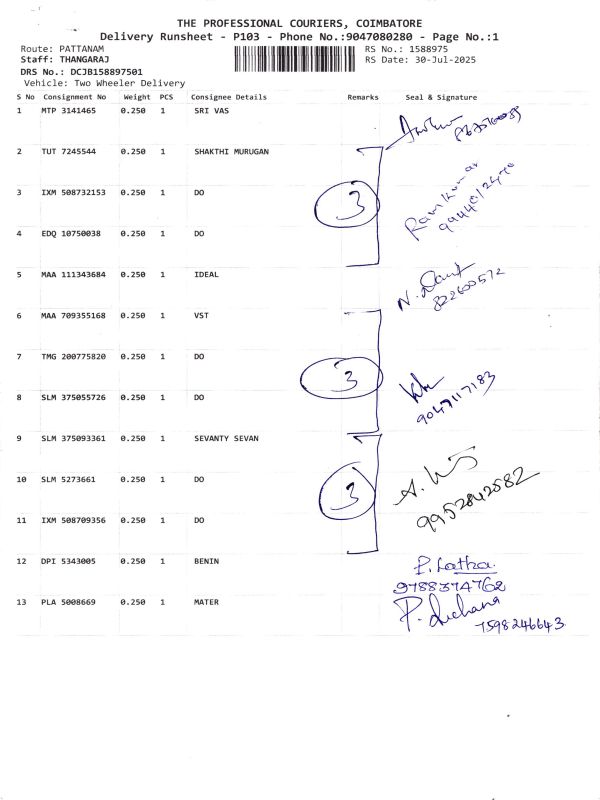 THE PROFESSIONAL COURIERS, COIMBATORE
Delivery Runsheet - P103 - Phone No.:9047080280 - Page No.:1
Route: PATTANAM RS No.: 1588975
Staff: THANGARAJ RS Date: 30-Jul-2025
DRS No.: DCJB158897501
Vehicle: Two Wheeler Delivery
S No Consignment No Weight PCS Consignee Details Remarks Seal & Signature
1 MTP 3141465 0.250 1 SRI VAS
2 TUT 7245544 0.250 1 SHAKTHI MURUGAN
3 IXM 508732153 0.250 1 DO 3 Ramkumar
4 EDQ 10750038 0.250 1 DO
5 MAA 111343684 0.250 1 IDEAL
822600572
6 MAA 709355168 0.250 1 VST
7 TMG 200775820 0.250 1 DO 3
8 SLM 375055726 0.250 1 DO 9047117183
9 SLM 375093361 0.250 1 SEVANTY SEVAN
10 SLM 5273661 0.250 1 DO 3
9952842582
11 IXM 508709356 0.250 1 DO
12 DPI 5343005 0.250 1 BENIN P. Latha
9788374762
13 PLA 5008669 0.250 1 MATER
7598246643